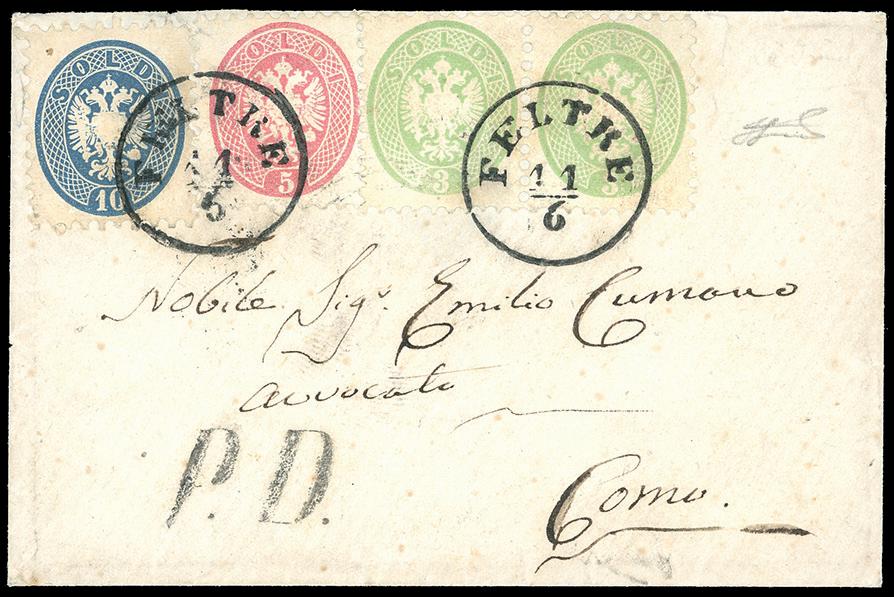 SOLDI SOLDI SOLDI SOLDI
10 5 3 3
FELTRE FELTRE
11 11
6 6
Nobile Sigr. Emilio Cumano
avvocato
P.D.
Como.